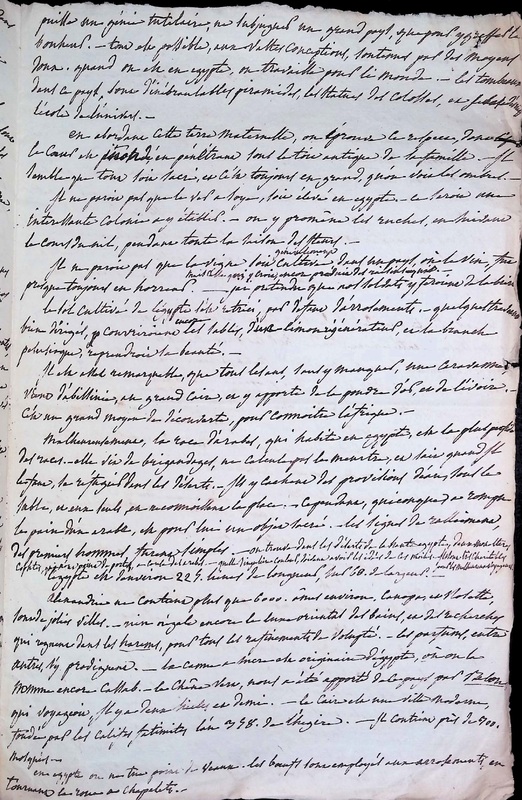 puisse un génie tutélaire, ne subjuguer un grand pays, que pour y
bonheur. - tout est possible, aux vastes conceptions, soutenues par des moyens
d'un. quand on est en egypte, on travaille pour le monde. - les tombeaux
dans ce pays, sont d'inébranlables piramides, les statues des colosses, et
l'école de l'univers. -
en abordant cette terre maternelle, on éprouve ce respect, dont
le coeur est en pénétrant sous le toit antique de sa famille. - Il
semble que tout soit sacré, et c'est toujours en grand, qu'on voit les ombres.
Il ne paroit pas que le ver a soye, soit élevé en egypte. - ce seroit une
interessante colonie a y établir. - on y promène les ruches, en suivant
le cours du nil, pendant toute la saison des fleurs. -
Il ne paroit pas que la vigne soit généralement cultivée dans un pays, où le vin, fut
presque toujours en horreur. - on prétend que nos soldats y feront de la bière
le sol cultivé de l'égypte s'est retréci, par défaut d'arrosements. - quelques travaux
bien dirigés, y couvriroient ces sables, d'un limon régénérateur, et la branche
pelusiaque, reprendroit sa beauté. -
Il est assez remarquable, que tous les ans, sans y manquer, une caravanne
vient d'abissinie, au grand caire, et y apporte de la poudre d'or, et de l'ivoire. -
C'est un grand moyen de découverte, pour connoitre l'afrique. -
Malheureusement, la race d'arabes, qui habite en egypte, est la plus
des races. - elle vit de brigandages, ne calcule pas le meurtre, et sait quand il
le faut, se réfugier dans les déserts. - Ils y cachent des provisions d'eau, sous le
sable, et eux seuls, en reconnoissent la place. - Cependant, quiconque a rompu
le pain d'un arabe, est pour lui un objet sacré. - les signes de ralliement,
des premiers hommes, furent simples. - on trouve dans les déserts de la haute egypte,
Cophtes,
l'egypte est d'environ 225 lieues de longueur, sur 68. de largeur. -
Alexandrie ne contient plus que 6000. âmes environ. Canope, et Rosette,
sont de jolies villes. - rien n'égale encore le luxe oriental des bains, et des recherches
qui regnent dans les harems, pour tous les rafinements de volupté. - les parfums, entre
autres, s'y prodiguent. - la canne a sucre est originaire d'egypte, où on la
nomme encore - Le chêne verd, nous a été apporté de ce pays par
qui voyageoit, il y a deux siècles et demi. - le Caire est une ville moderne,
fondée par les califes fatimites l'an 358. de l'hégire. - Il contient près de 300.
mosquées. -
en egypte on ne tue point de veaux. les boeufs sont employés aux arrosements, en
tournant la roue a chapelets. -